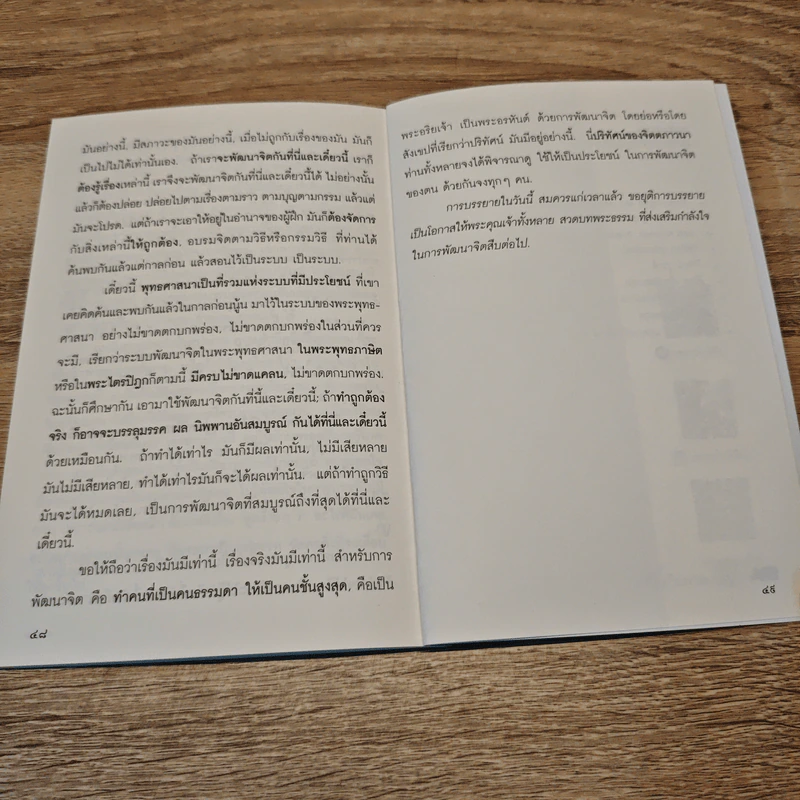 มันอย่างนี้, มีสภาวะของมันอย่างนี้, เมื่อไม่ถูกกับเรื่องของมัน มันก็
เป็นไปไม่ได้เท่านั้นเอง. ถ้าเราจะพัฒนาจิตกันที่นี่และเดี๋ยวนี้ เราก็
ต้องรู้เรื่องเหล่านี้ เราจึงจะพัฒนาจิตกันที่นี่และเดี๋ยวนี้ได้ ไม่อย่างนั้น
แล้วก็ต้องปล่อย ปล่อยไปตามเรื่องตามราว ตามบุญตามกรรม แล้วแต่
มันจะโปรด. แต่ถ้าเราจะเอาให้อยู่ในอำนาจของผู้ฝึก มันก็ต้องจัดการ
กับสิ่งเหล่านี้ให้ถูกต้อง, อบรมจิตตามวิธีหรือกรรมวิธี ที่ท่านได้
ค้นพบกันแล้วแต่กาลก่อน แล้วสอนไว้เป็นระบบ เป็นระบบ.
เดี๋ยวนี้ พุทธศาสนาเป็นที่รวมแห่งระบบที่มีประโยชน์ ที่เขา
เคยคิดค้นและพบกันแล้วในกาลก่อนนู้น มาไว้ในระบบของพระพุทธ-
ศาสนา อย่างไม่ขาดตกบกพร่อง, ไม่ขาดตกบกพร่องในส่วนที่ควร
จะมี, เรียกว่าระบบพัฒนาจิตในพระพุทธศาสนา ในพระพุทธภาษิต
หรือในพระไตรปิฎกก็ตามนี้ มีครบไม่ขาดแคลน, ไม่ขาดตกบกพร่อง.
ฉะนั้นก็ศึกษากัน เอามาใช้พัฒนาจิตกันที่นี้และเดี๋ยวนี้; ถ้าทำถูกต้อง
จริง ก็อาจจะบรรลุมรรค ผล นิพพานอันสมบูรณ์ กันได้ที่นี่และเดี๋ยวนี้
ด้วยเหมือนกัน. ถ้าทำได้เท่าไร มันก็มีผลเท่านั้น, ไม่มีเสียหลาย
มันไม่มีเสียหลาย, ทำได้เท่าไรมันก็จะได้ผลเท่านั้น. แต่ถ้าทำถูกวิธี
มันจะได้หมดเลย, เป็นการพัฒนาจิตที่สมบูรณ์ถึงที่สุดได้ที่นี่และ
เดี๋ยวนี้.
ขอให้ถือว่าเรื่องมันมีเท่านี้ เรื่องจริงมันมีเท่านี้ สำหรับการ
พัฒนาจิต คือ ทำคนที่เป็นคนธรรมดา ให้เป็นคนชั้นสูงสุด, คือเป็น
๔๘
พระอริยเจ้า เป็นพระอรหันต์ ด้วยการพัฒนาจิต โดยย่อหรือโดย
สังเขปที่เรียกว่าปริทัศน์ มันมีอยู่อย่างนี้. นี่ปริทัศน์ของจิตตภาวนา
ท่านทั้งหลายจงได้พิจารณาดู ใช้ให้เป็นประโยชน์ ในการพัฒนาจิต
ของตน ด้วยกันจงทุกๆ คน.
การบรรยายในวันนี้ สมควรแก่เวลาแล้ว ขอยุติการบรรยาย
เป็นโอกาสให้พระคุณเจ้าทั้งหลาย สวดบทพระธรรม ที่ส่งเสริมกำลังใจ
ในการพัฒนาจิตสืบต่อไป.
๔๙